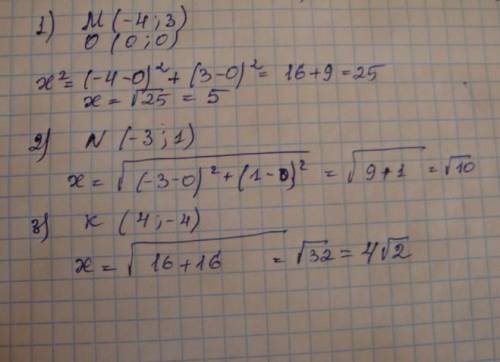 1) M (-4; 3)
O (0; 0)
x² = (-4-0)² + (3-0)² = 16+9 = 25
x = √25 = 5
2) N (-3; 1)
x = √((-3-0)² + (1-0)²) = √(9+1) = √10
3) K (4; -4)
x = √(16+16) = √32 = 4√2